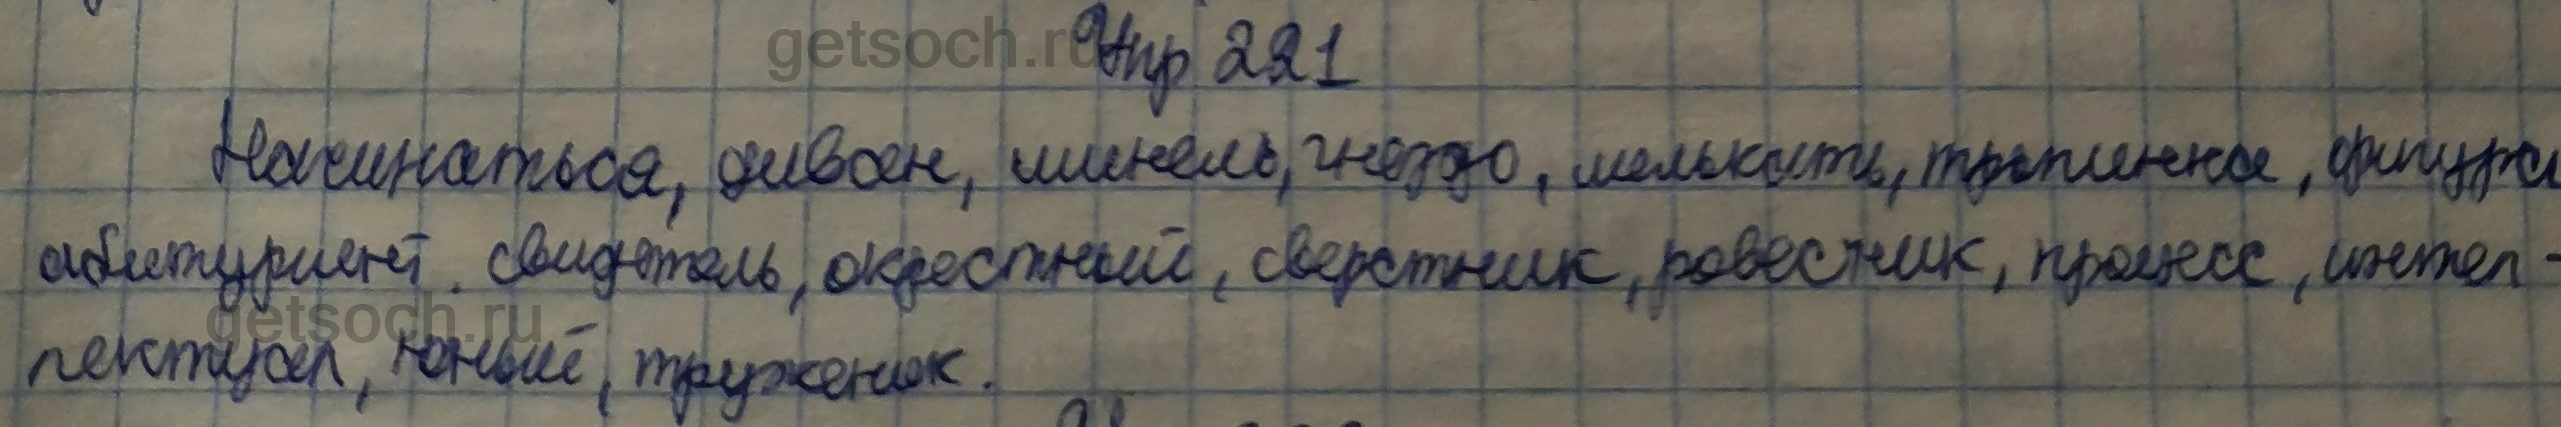 Упр 221
Начинаться, диван, шинель, гнездо, мелькать, тропинка, фигура
абитуриент. свидетель, окрестный, сверстник, ровесник, процесс, интел-
лектуал, юный, труженик.
getsoch.ru
getsoch.ru